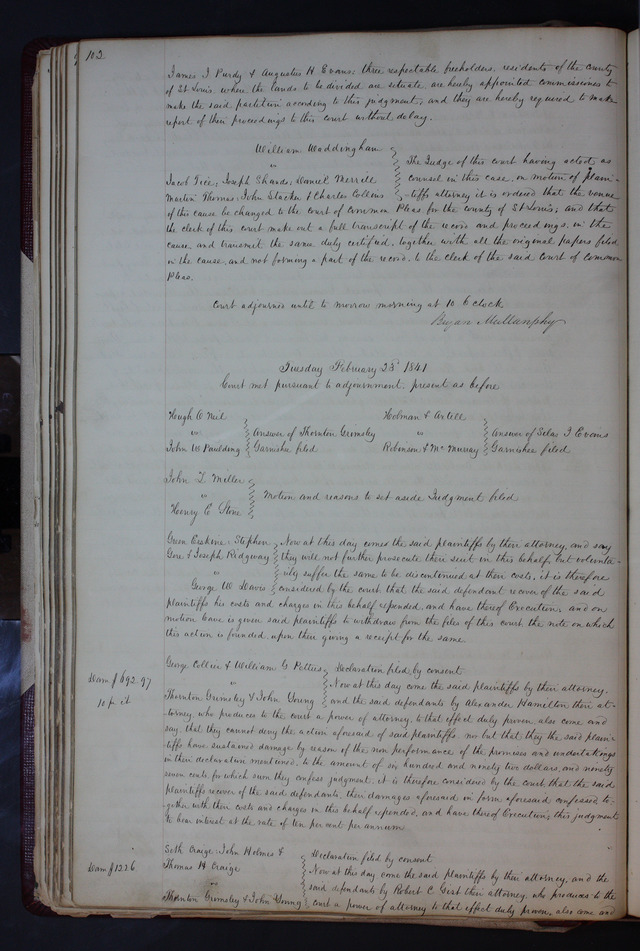 102
James J Purdy & Augustus H Evans; three respectable freeholders, residents of the county
of St Louis where the lands to be divided are situate are hereby appointed commissioners to
make the said partition according to this judgment, and they are hereby required to make
report of their proceedings to this court without delay.
William Waddingham
vs
Jacob Tice; Joseph Shands; Daniel Merrill
Martin Thomas; John Stacker & Charles Collins
The Judge of this court having acted as
counsel in this case, on motion of plain-
-tiffs attorney it is ordered that the venue
of this cause be changed to the court of common Pleas for the county of St Louis; and that
the clerk of this court make out a full transcript of the record and proceedings in the
cause and transmit the same duly certified, together with all the original papers filed
in the cause, and not forming a part of the record, to the clerk of the said Court of Common
Pleas.
Court adjourned until to morrow morning at 10 O clock
Bryan Mullanphy
Tuesday February 23d 1841
Court met pursuant to adjournment, present as before
Hugh O Neil
vs
John W Paulding
Answer of Thornton Grimsley
Garnishee filed
Holman & Axtell
vs
Robinson & Mc Murray
Answer of Silas J Evans
Garnishee filed
John L Miller
vs
Henry C Stone
Motion and reasons to set aside Judgment filed
Green Erskine; Stephen
Gore & Joseph Ridgway
vs
George W Davis
Now at this day comes the said plaintiffs by their attorney, and say
they will not further prosecute their suit in this behalf, but volunta-
-rily suffer the same to be discontinued at their costs, it is therefore
considered by the court that the said defendant recover of the said
plaintiffs his costs and charges in this behalf expended, and have thereof Execution, and on
motion leave is given said plaintiffs to withdraw from the files of this court the note on which
this action is founded, upon their giving a receipt for the same.
Dam $ 692.97
10 p. ct
George Collier & William G Pettus
vs
Thornton Grimsley & John Young
Declaration filed by consent
Now at this day come the said plaintiffs by their attorney
and the said defendants by Alexander Hamilton their at-
-torney who produces to the court a power of attorney, to that effect duly proven also come and
say, that they cannot deny the action aforesaid of said plaintiffs nor but that they the said plain-
tiffs have sustained damage by reason of the non performance of the promises and undertakings
in their declaration mentioned, to the amount of six hundred and ninety two dollars, and ninety
seven cents, for which sum they confess judgment, it is therefore considered by the court that the said
plaintiffs recover of the said defendants, their damages aforesaid in form aforesaid confessed to-
gether with their costs and charges in this behalf expended, and have thereof Execution; this judgment
to bear interest at the rate of ten per cent per annum
Dam $1226
Seth Craige John Holmes &
Thomas H Craige
vs
Thornton Grimsley & John Young
Declaration filed by consent
Now at this day come the said plaintiffs by their attorney, and the
said defendants by Robert C Gist their attorney, who produces to the
court a power of attorney to that effect duly proven, also come and